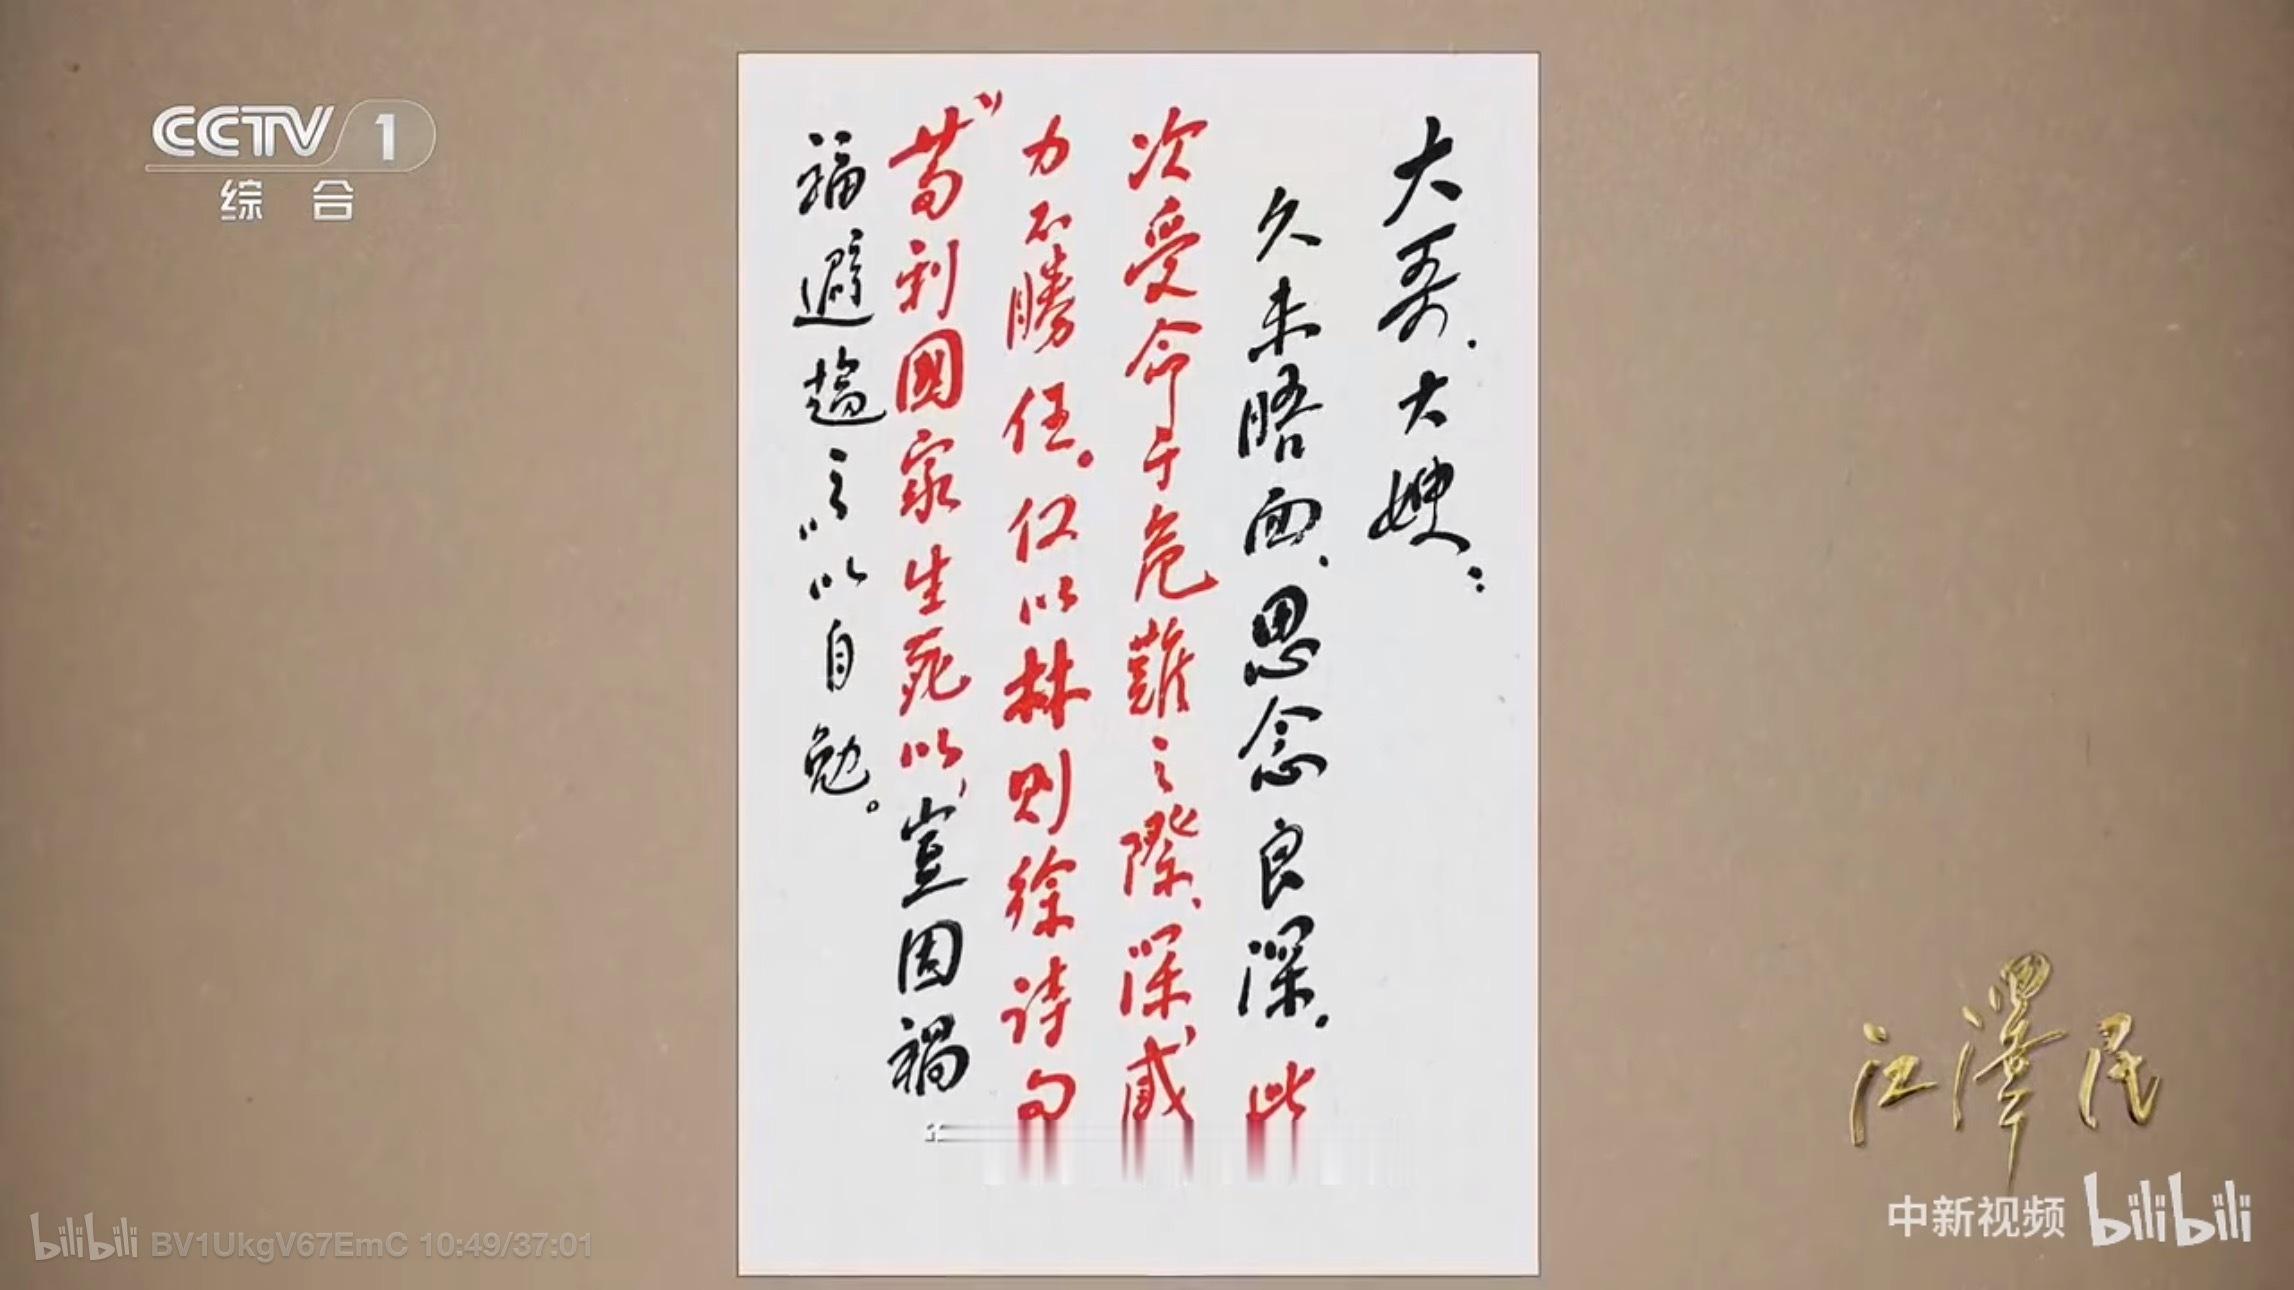 CCTV 1
综合
大哥、大嫂：
久未晤面、思念良深。此
次受命于危难之際、深感
力不勝任。仅以林则徐诗句
“苟利國家生死以，豈因禍
福避趋之”以自勉。
江澤民
中新视频 bilibili
bilibili BV1UkgV67EmC 10:49/37:01